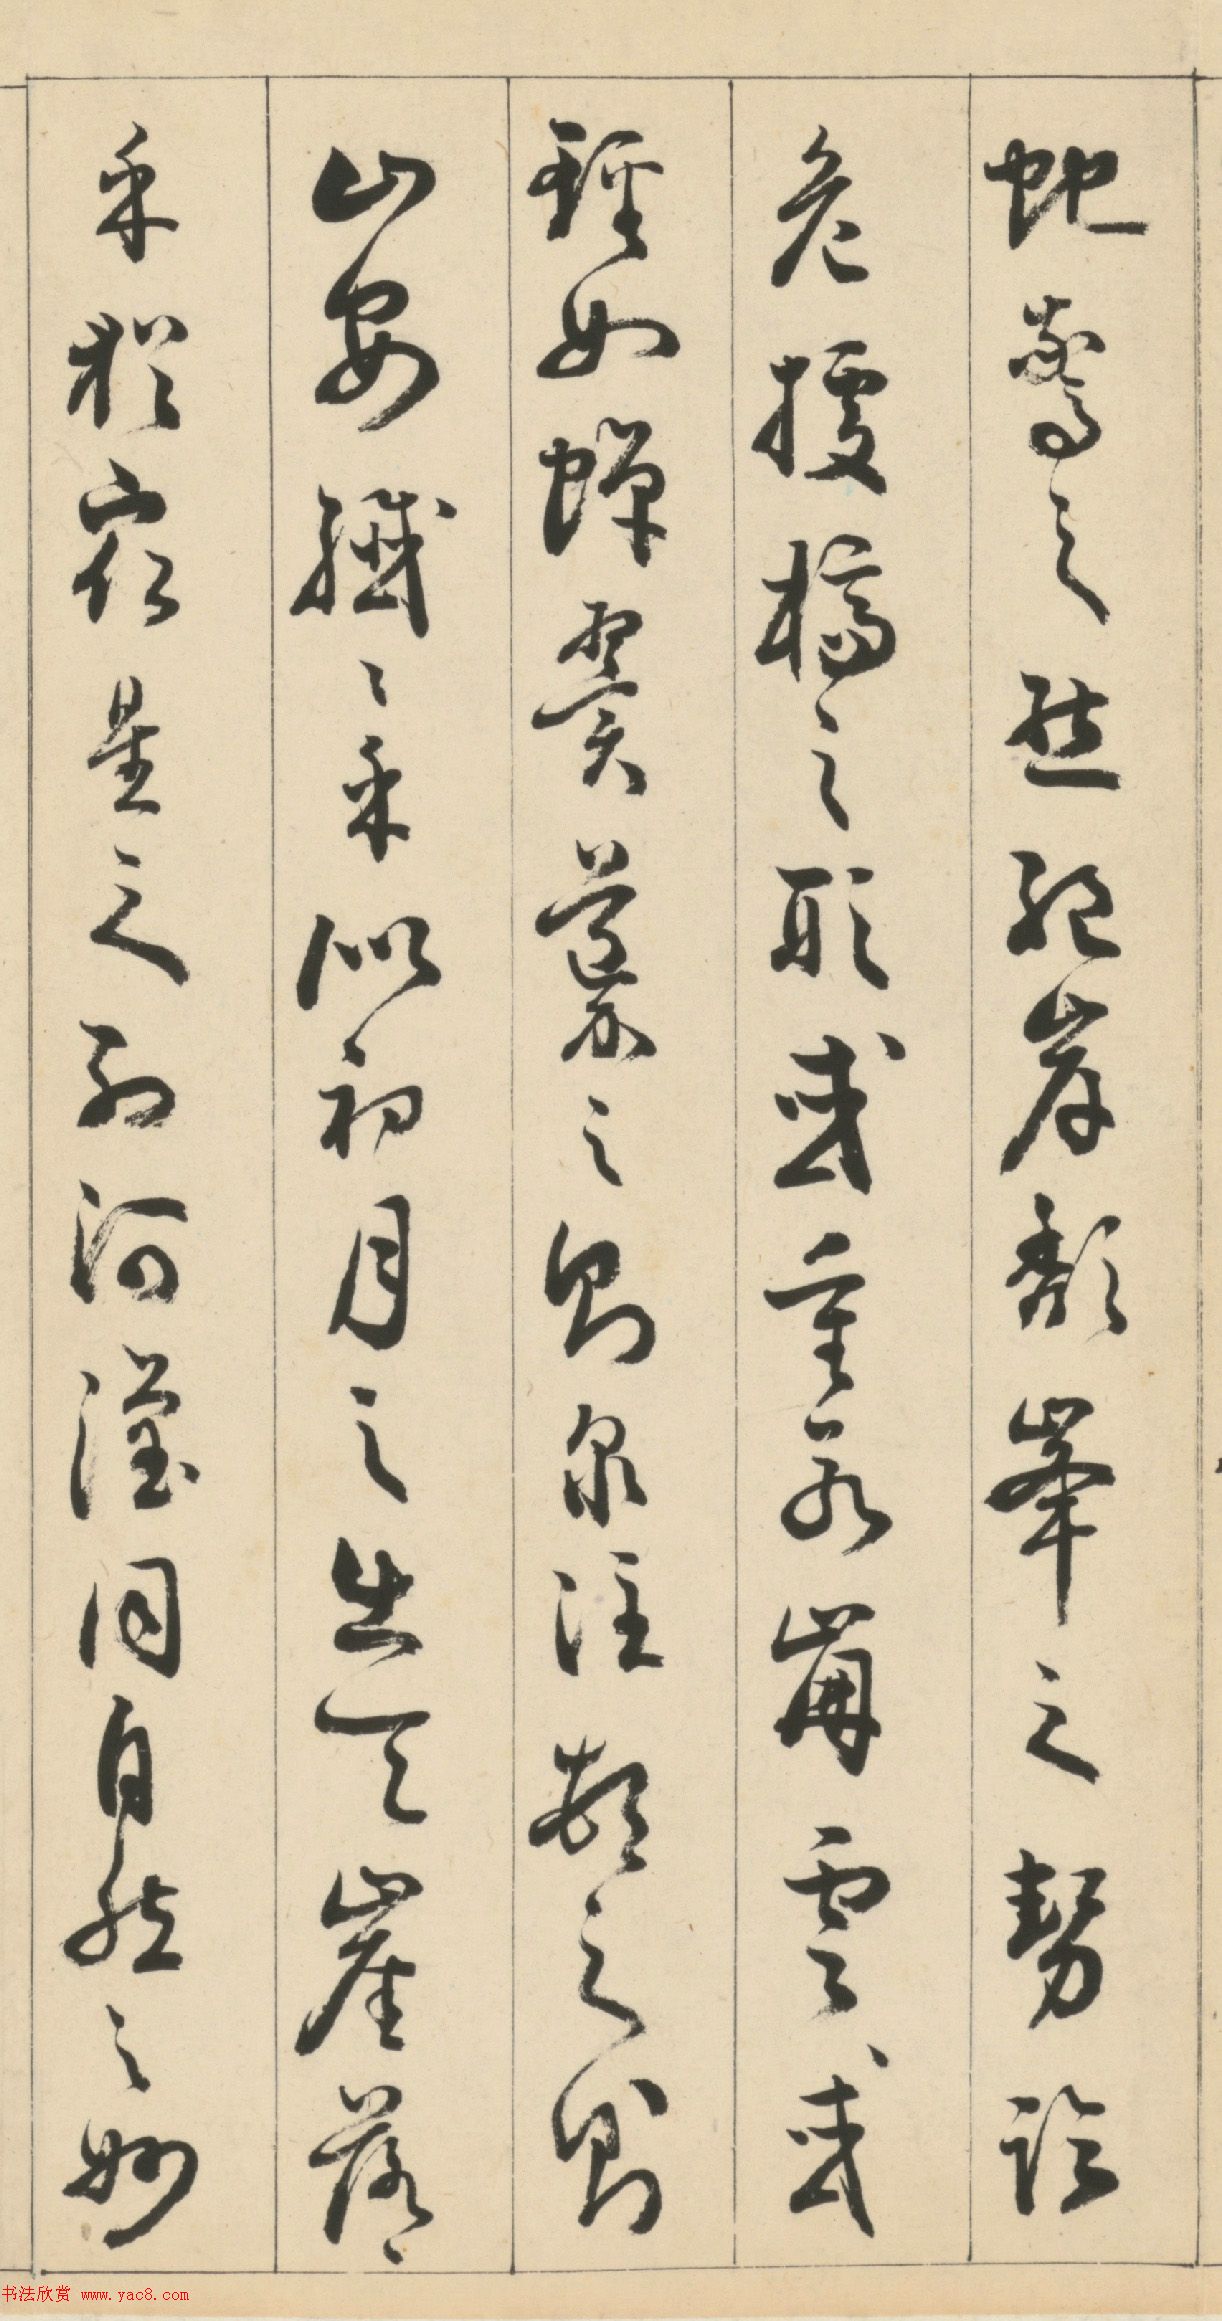 蛇驚之態絕岸頹峯之勢臨
危據槁之形或重若崩雲或
輕如蟬翼導之則泉注頓之則
山安纖〻乎似初月之出天崖落〻
乎猶衆星之列河漢同自然之妙
书法欣赏 www.yac8.com